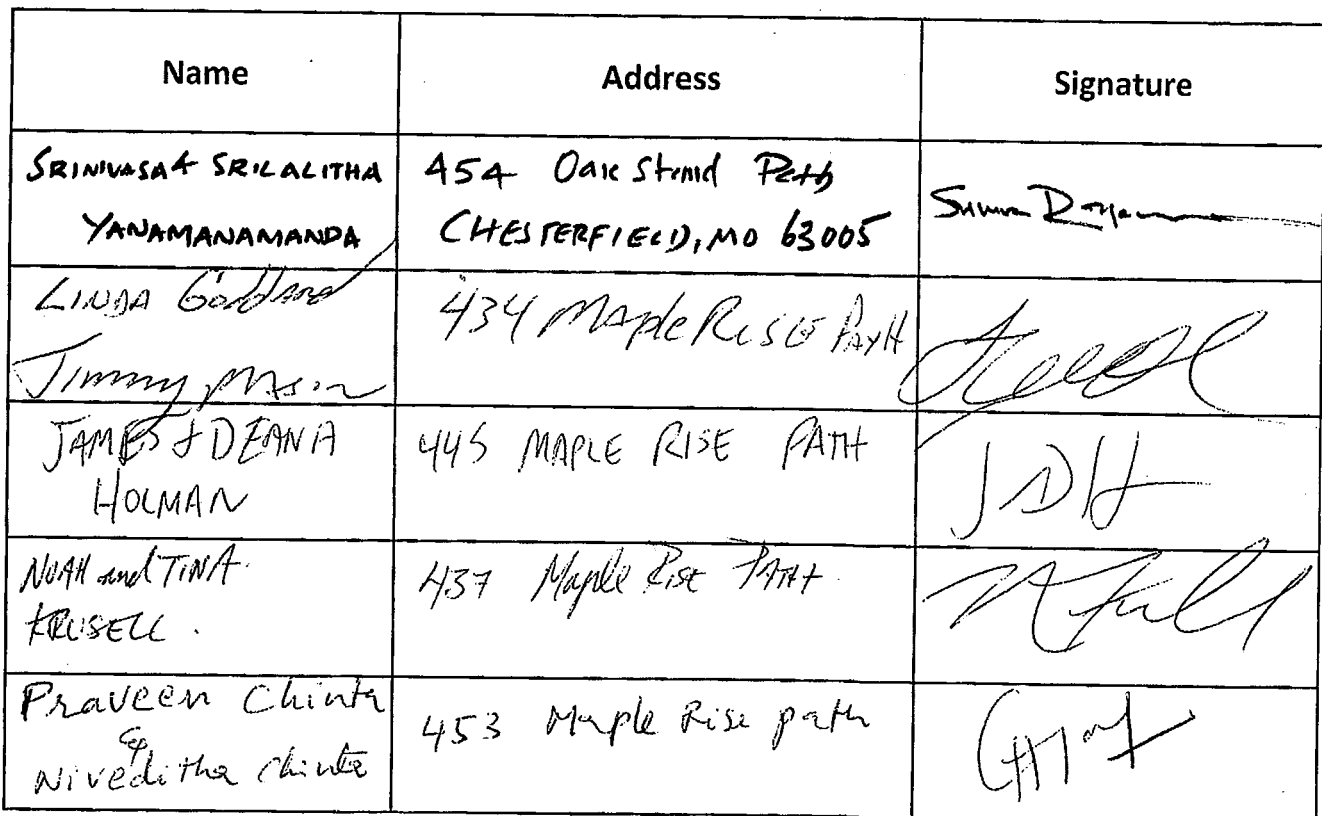 Name Address Signature
SRINIVASA & SRILALITHA
YANAMANAMANDA
454 Oak Stand Path
CHESTERFIELD, MO 63005
LINDA Goddard
Jimmy Mason
434 Maple RISE PAYH
JAMES & DEANA
HOLMAN
445 MAPLE RISE PATH
JDH
NOAH and TINA
KRUSELL.
437 Maple Rise PATH
Praveen Chinta
&
Niveditha Chinta
453 Maple Rise path